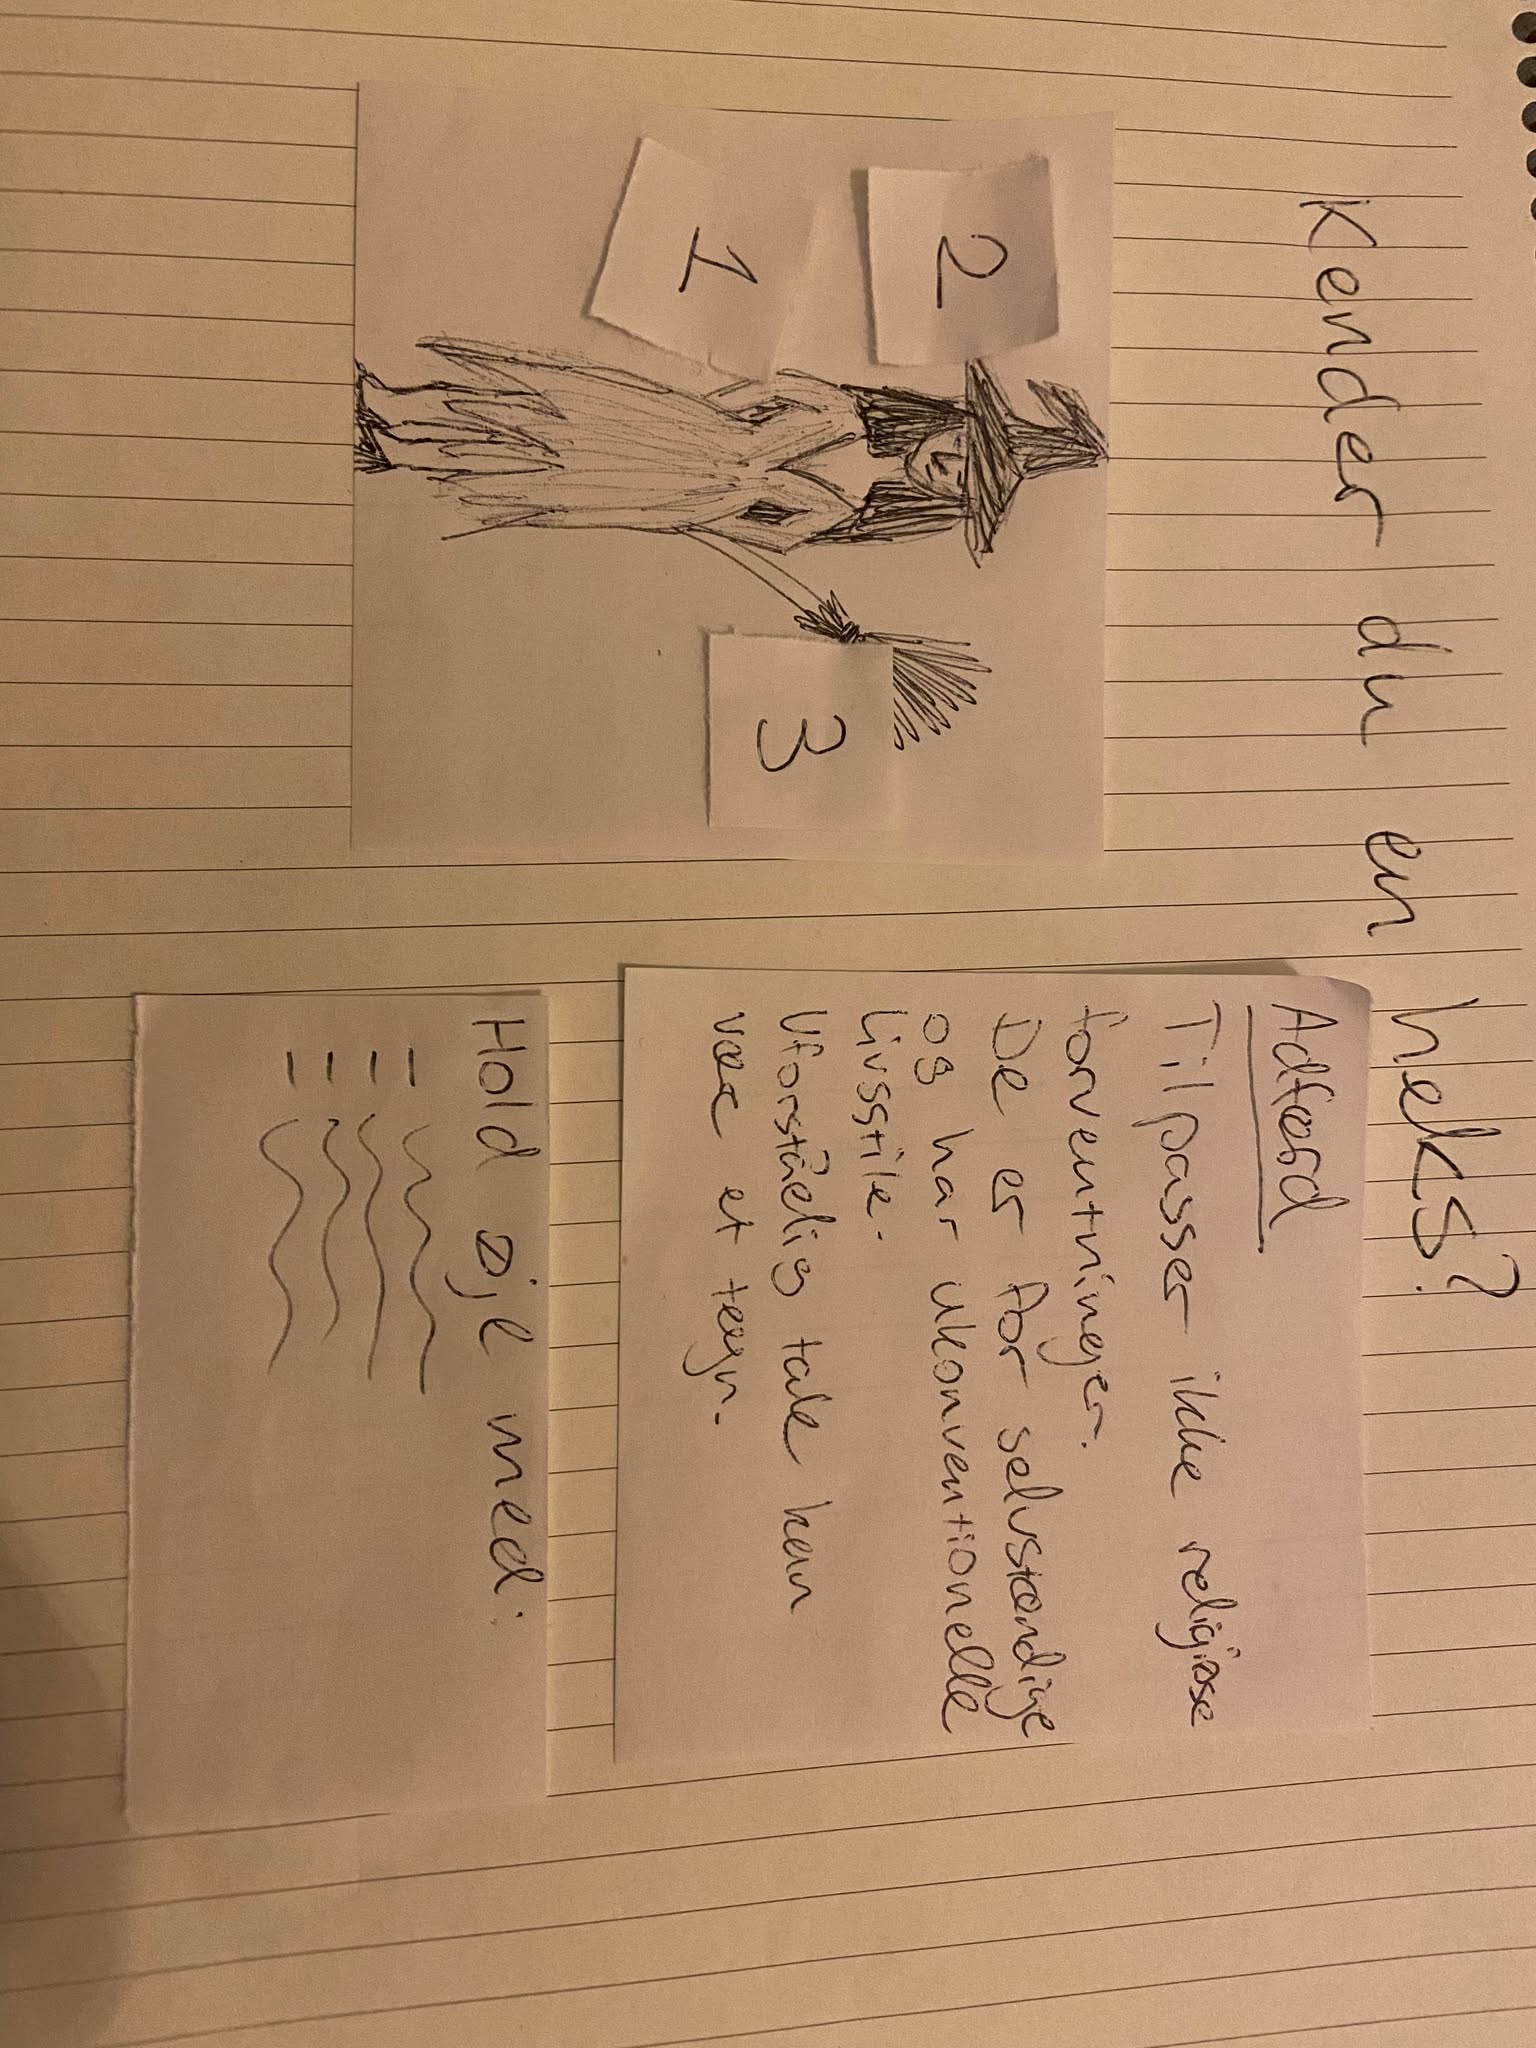 Kender du en heks?
2
1
3
Adfærd
Tilpasser ikke religiøse
forventninger.
De er for selvstændige
og har ukonventionelle
livsstile.
Uforståelig tale kan
være et tegn.
Hold øje med: